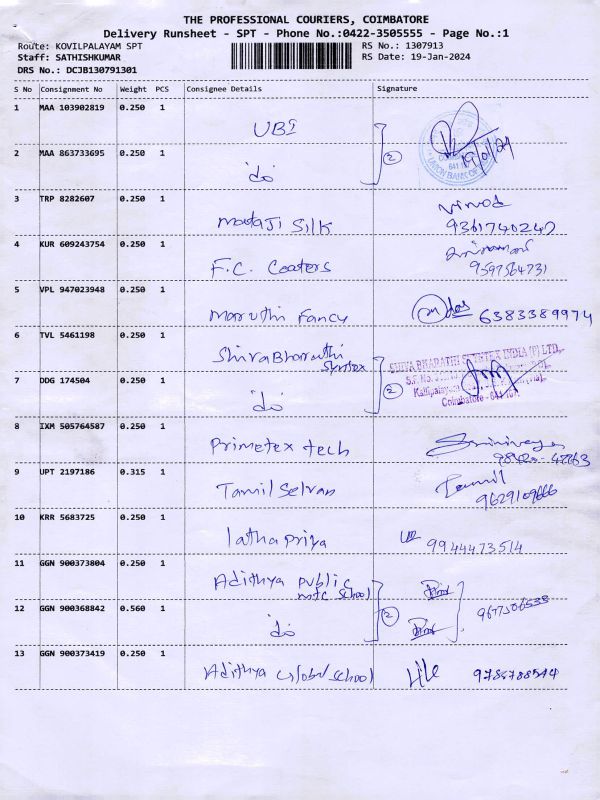 THE PROFESSIONAL COURIERS, COIMBATORE
Delivery Runsheet - SPT - Phone No.:0422-3505555 - Page No.:1
Route: KOVILPALAYAM SPT RS No.: 1307913
Staff: SATHISHKUMAR RS Date: 19-Jan-2024
DRS No.: DCJB130791301
S No Consignment No Weight PCS Consignee Details Signature
1 MAA 103902819 0.250 1 UBI 19/01/24
2 MAA 863733695 0.250 1 do 2
UNION BANK OF
3 TRP 8282607 0.250 1 mataJi Silk Vinod
9361740240
4 KUR 609243754 0.250 1 F.C. Coaters
9597564731
5 VPL 947023948 0.250 1 Maruthi Fancy 6383389974
6 TVL 5461198 0.250 1 Shiva Bharathi
Syntex
SHIVA BHARATHI SYNTEX INDIA (P) LTD.,
7 DDG 174504 0.250 1 do 2
Coimbatore - 641 107
8 IXM 505764587 0.250 1 Primetex tech
9 UPT 2197186 0.315 1 Tamil Selvan Tamil
9629109666
10 KRR 5683725 0.250 1 latha priya 9944473514
11 GGN 900373804 0.250 1 Adithya public
matc school
12 GGN 900368842 0.560 1 do 2
13 GGN 900373419 0.250 1 Adithya Global school